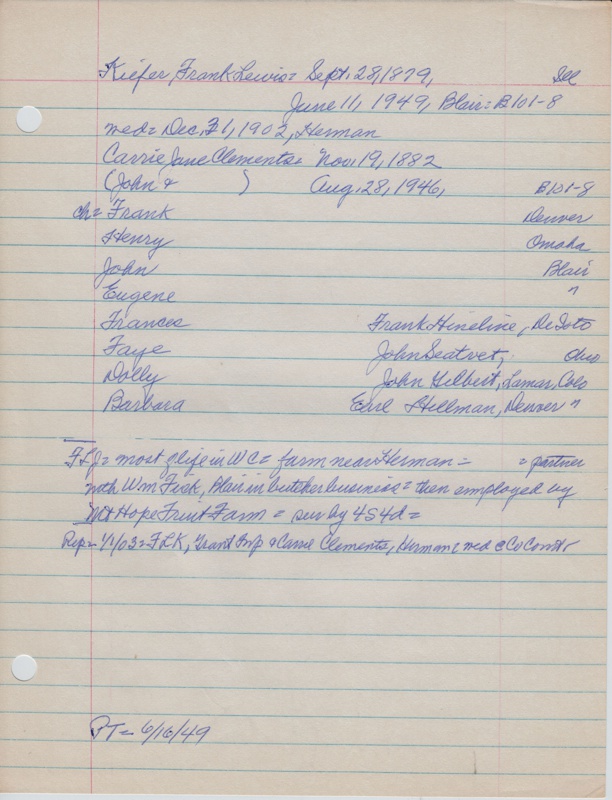 Kiefer, Frank Lewis = Sept. 28, 1879, Ill
June 11, 1949, Blair = B101-8
wed = Dec. 1, 1902, Herman
Carrie Jane Clements = Nov. 19, 1882
(John & ) Aug. 28, 1946, B101-8
ch = Frank Denver
Henry Omaha
John Blair
Eugene "
Frances Frank Hineline, DeSoto
Faye John Seatvet, Ohio
Dolly John Hilbert, Lamar, Colo
Barbara Earl Hillman, Denver "
= most of life in WC = farm near Herman = = partner
with Wm Fisk, Blair in butcher business = then employed by
Mt Hope Fruit Farm = sur by 4S 4d =
Rep = 1/1/03 = FLK, Grant Twp & Carrie Clements, Herman = wed @ Co
PT = 6/16/49